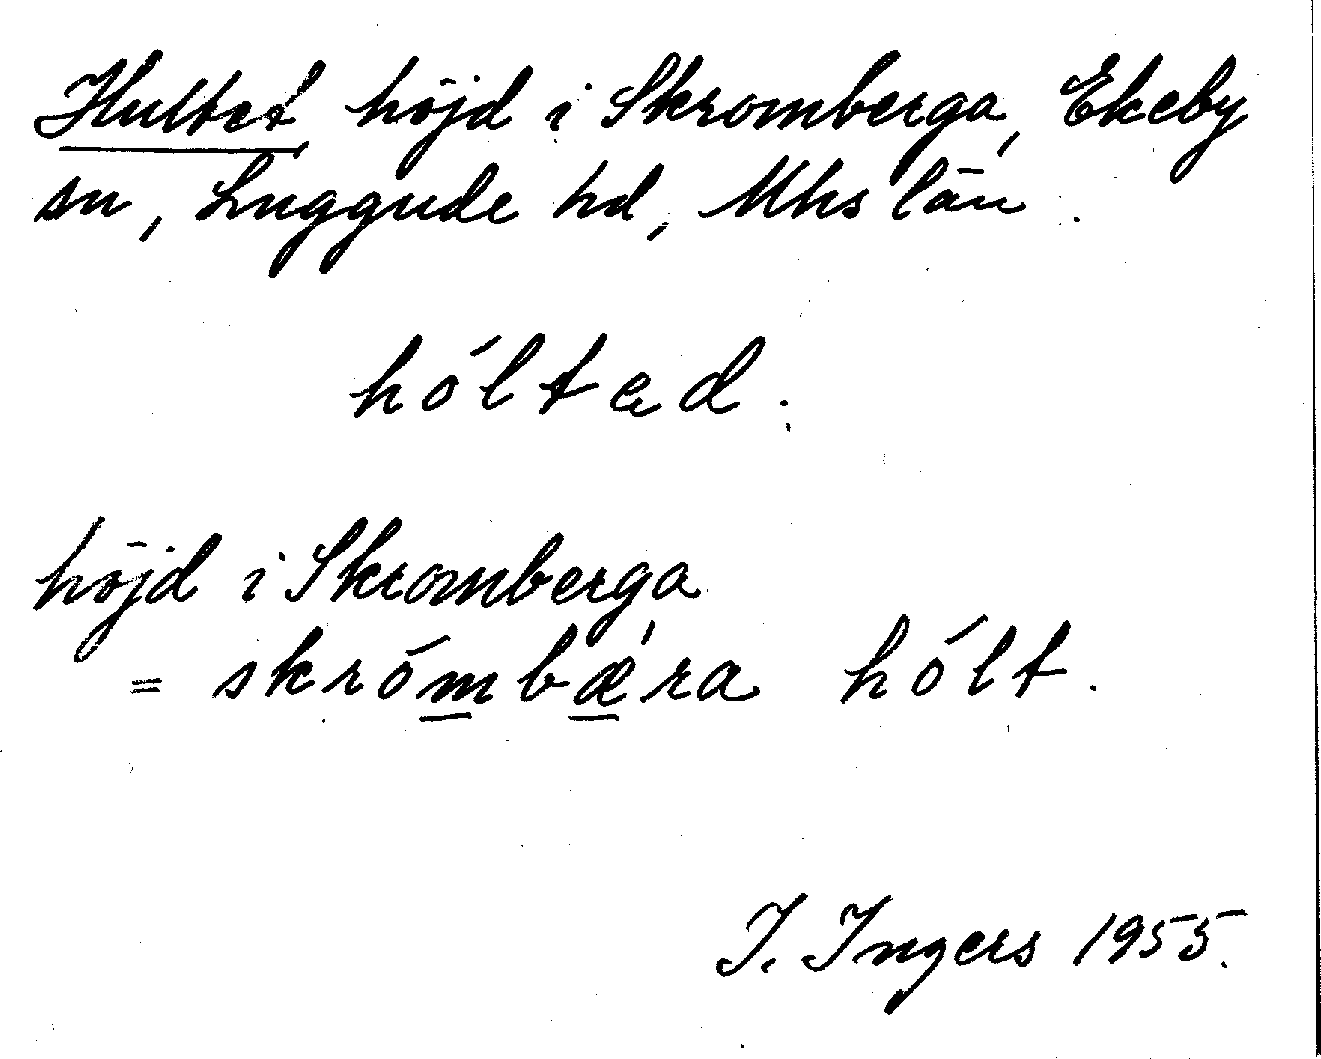 Hultet höjd i Skromberga, Ekeby
sn, Luggude hd, Mhs län.
hóltæd.
höjd i Skromberga
= skrómbæ̀ra hólt.
I. Ingers 1955.